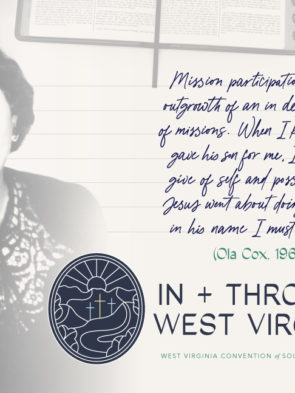 Mission participation
outgrowth of an in de
of missions. When I
gave his son for me, I
give of self and poss
Jesus went about doin
in his name I must
(Ola Cox, 196
IN + THRO
WEST VIRG
WEST VIRGINIA CONVENTION of SOU